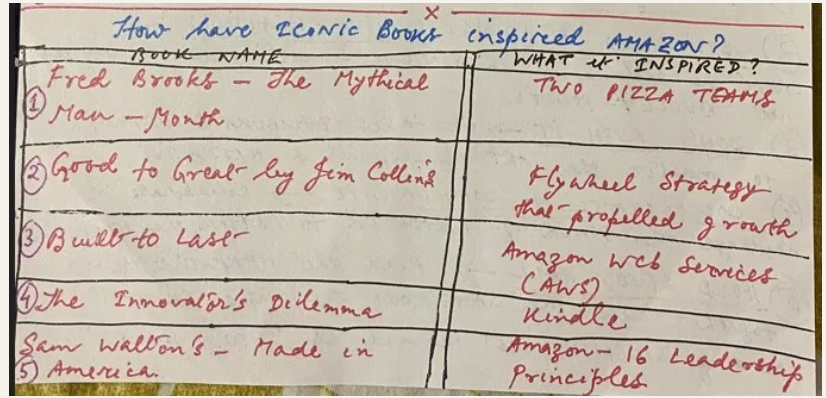 x
How have Iconic Books inspired AMAZON?
BOOK NAME
WHAT it INSPIRED?
① Fred Brooks - The Mythical
Man - Month
TWO PIZZA TEAMS
② Good to Great by Jim Collins
Flywheel Strategy
that propelled growth
③ Built to Last
Amazon Web Services
(AWS)
④ The Innovator's Dilemma
Kindle
Sam Walton's - Made in
⑤ America.
Amazon - 16 Leadership
Principles